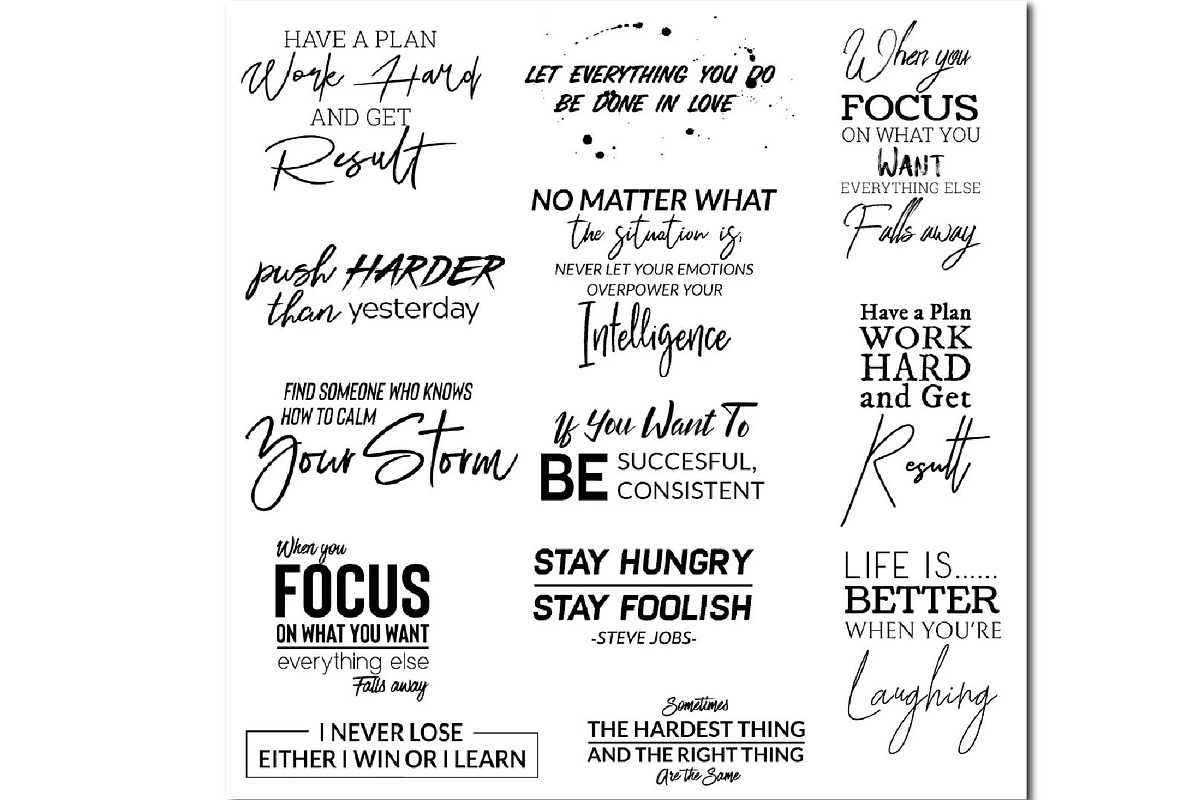 HAVE A PLAN
Work Hard
AND GET
Result
push HARDER
than yesterday
FIND SOMEONE WHO KNOWS
HOW TO CALM
Your Storm
When you
FOCUS
ON WHAT YOU WANT
everything else
Falls away
I NEVER LOSE
EITHER I WIN OR I LEARN
LET EVERYTHING YOU DO
BE DONE IN LOVE
NO MATTER WHAT
the situation is,
NEVER LET YOUR EMOTIONS
OVERPOWER YOUR
Intelligence
If You Want To
BE SUCCESFUL,
CONSISTENT
STAY HUNGRY
STAY FOOLISH
-STEVE JOBS-
Sometimes
THE HARDEST THING
AND THE RIGHT THING
Are the Same
When you
FOCUS
ON WHAT YOU
WANT
EVERYTHING ELSE
Falls away
Have a Plan
WORK
HARD
and Get
Result
LIFE IS......
BETTER
WHEN YOU'RE
Laughing